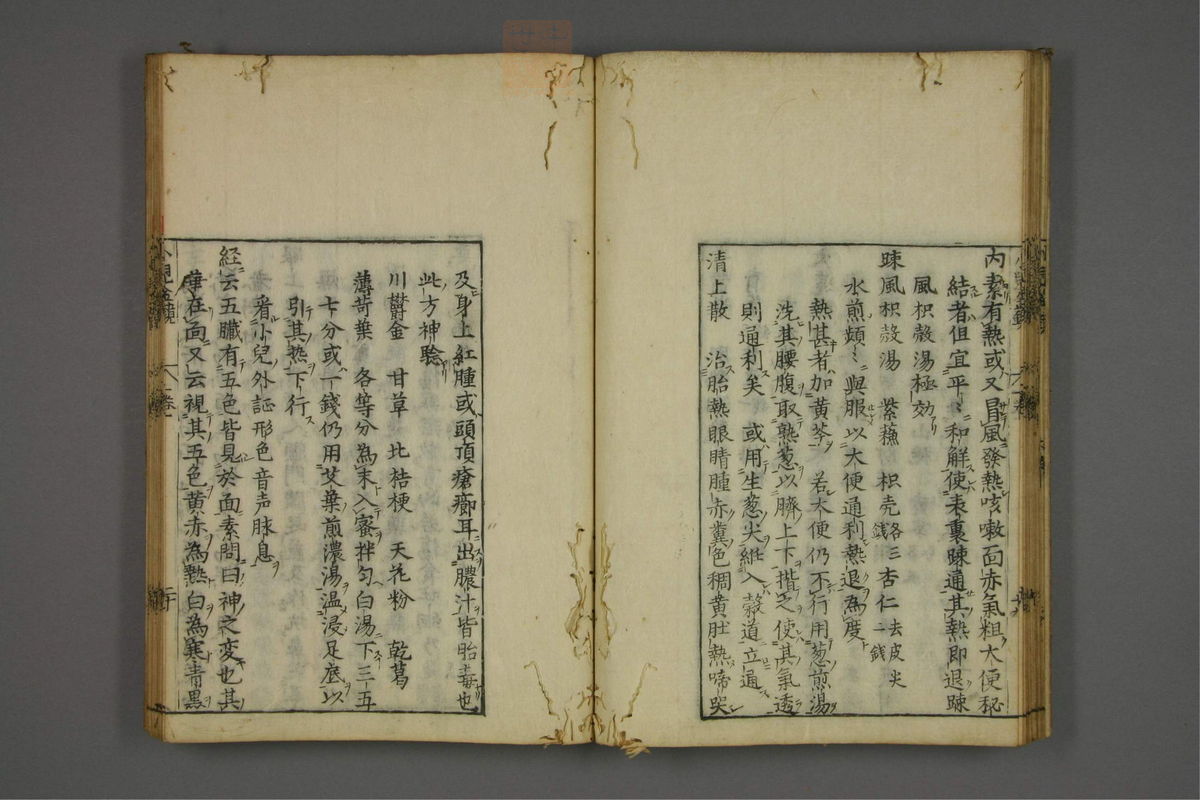 內素有熱或又冒風發熱咳嗽面赤氣粗大便秘
結者但宜平〻和解使表裏踈通其熱即退踈
風枳殼湯極効
踈風枳殼湯 紫蘓 枳壳各三錢杏仁二錢去皮尖
水煎頻〻與服以大便通利熱退為度
熱甚者加黃芩 若大便仍不行用葱煎湯
洗其腰腹取熟葱以臍上下揩之使其氣透
則通利矣 或用生葱尖維入糓道立通
清上散 治胎熱眼睛腫赤糞色稠黃肚熱啼哭
及身上紅腫或頭頂瘡癤耳出膿汁皆胎毒也
此方神驗
川欝金 甘草 北桔梗 天花粉 乾葛
薄苛葉 各等分為末入蜜拌匀白湯下三五
七分或一錢仍用艾葉煎濃湯温浸足底以
引其热下行
看小兒外証形色音声脉息
経云五臓有五色皆見於面素問曰神之変也其
華在面又云視其五色黃赤為熱白為寒青黒